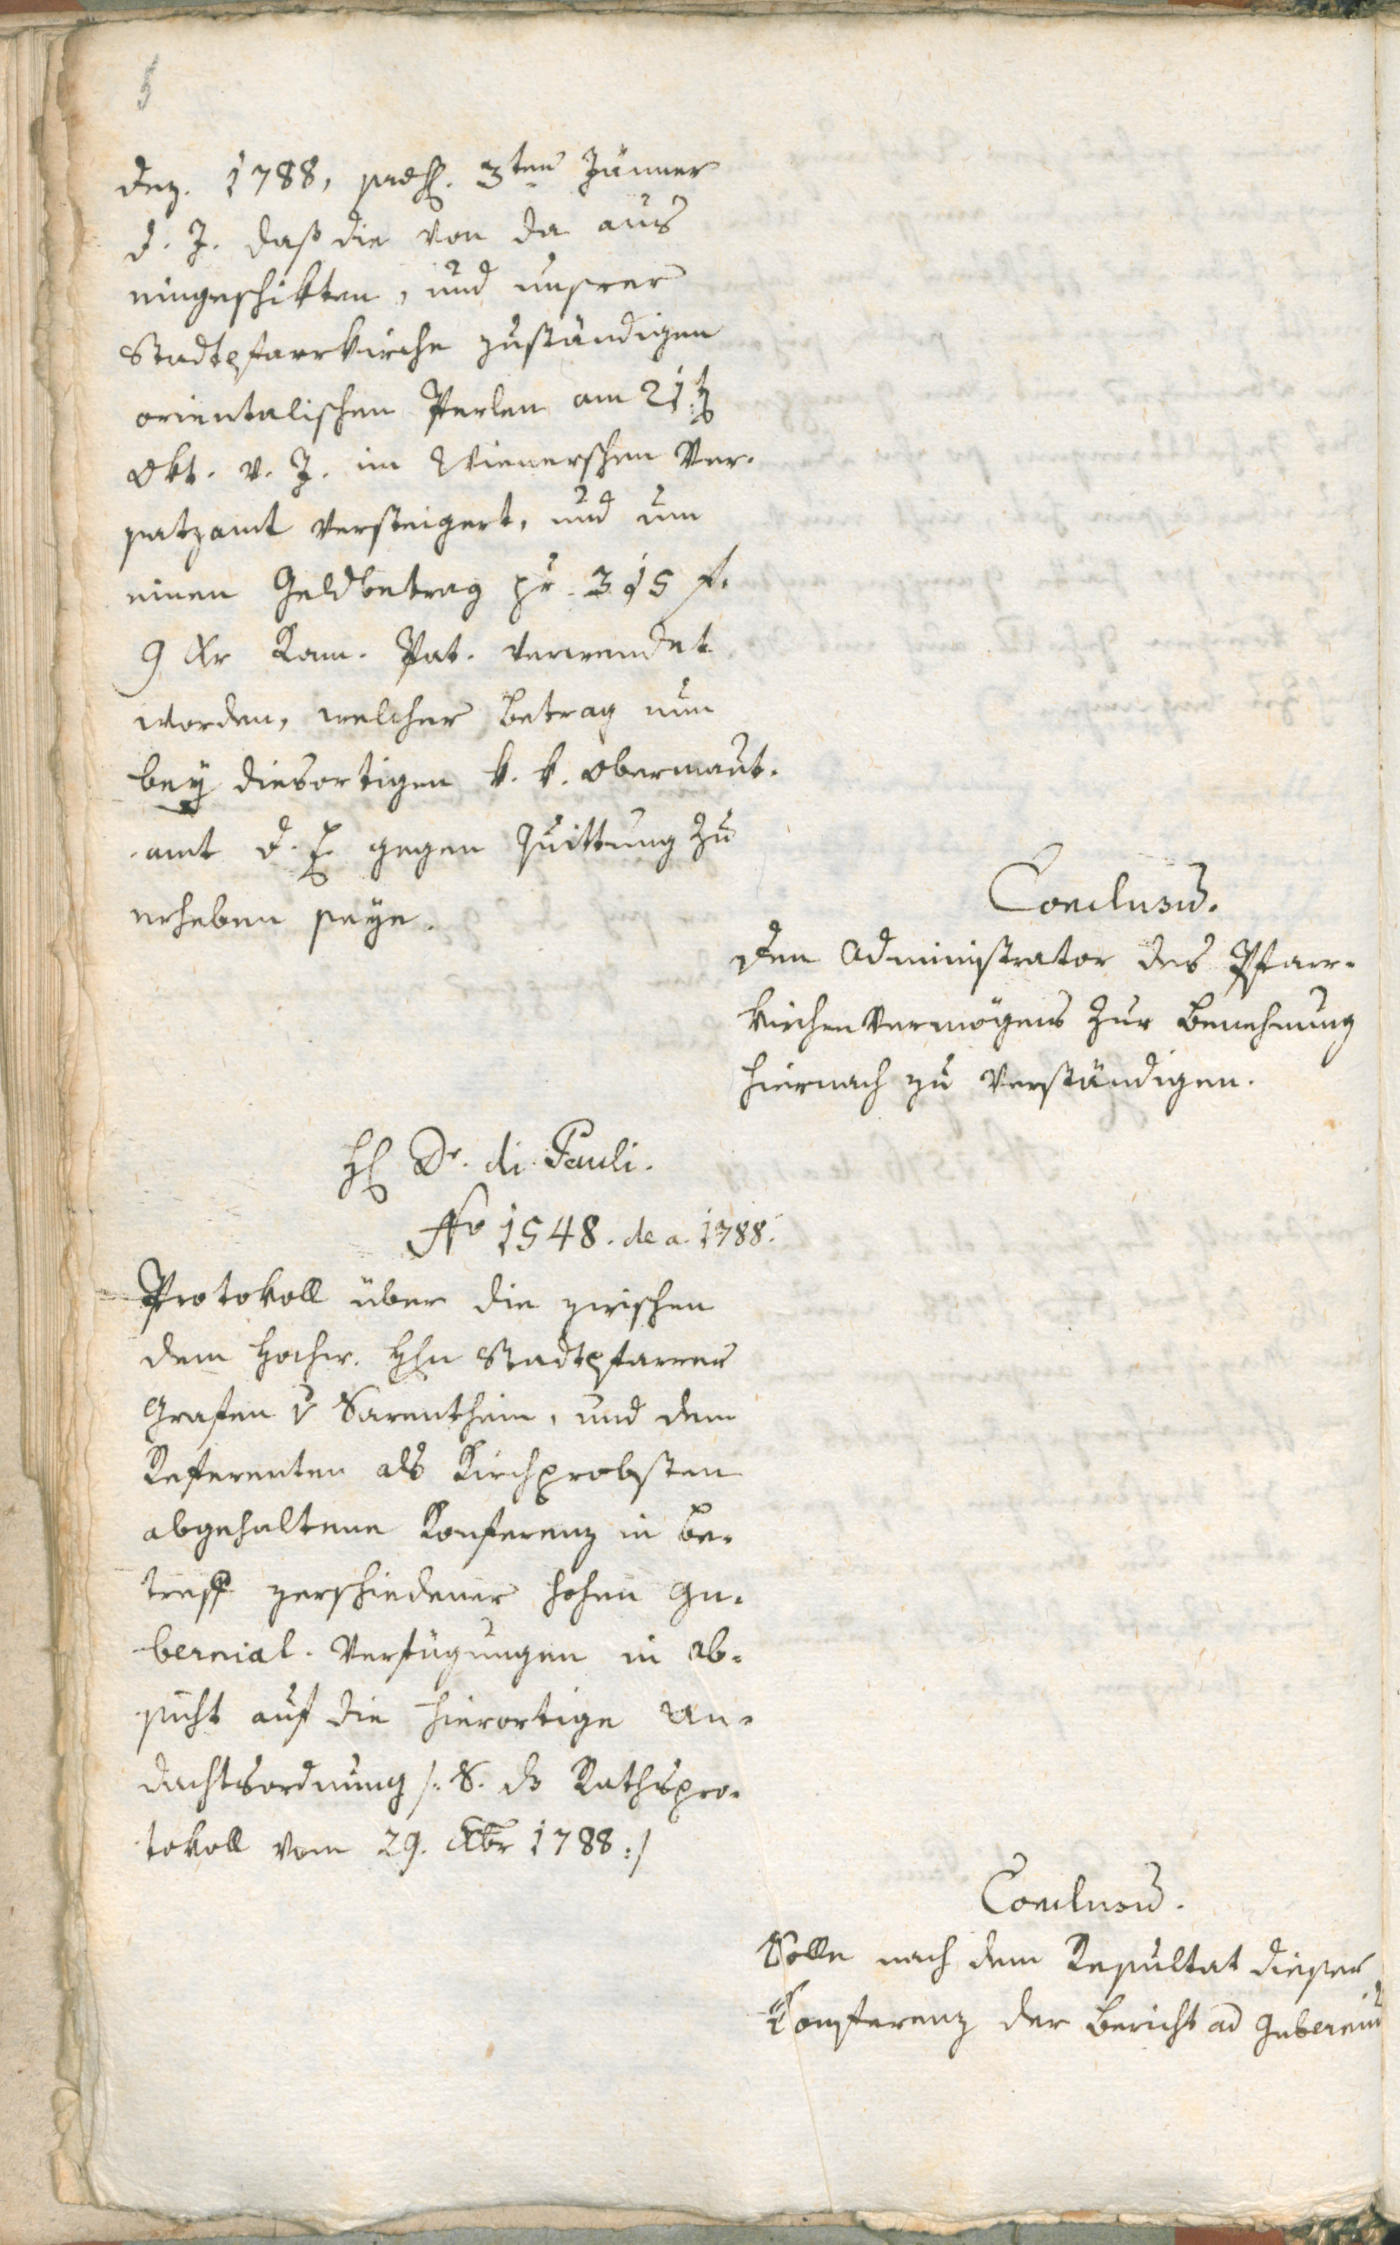 Dez. 1788, praes. 3ten Jänner
d. J. daß die von da aus
eingeschikten, und unsrer
Stadtpfarrkirche zuständigen
orientalischen Perlen am 21t
Okt. v. J. im Wienerschen Ver-
satzamt versteigert, und um
einen Geldbetrag pr. 315 f.
9 Xr Kam. Pat. verwendet
worden, welcher Betrag nun
bey diesortigen k. k. Obermaut-
-amt d. E. gegen Quittung zu
erheben seye.
Conclusũ.
Den Administrator des Pfarr-
kirchenvermögens zur Benehmung
hiernach zu verständigen.
H Dr. di Pauli.
No 1548. de a. 1788.
Protokoll über die zwischen
dem hochw. Hln Stadtpfarrer
Grafen v Sarenthein, und dem
Referenten als Kirchprobsten
abgehaltene Konferenz in be-
treff zerschiedener hohen Gu-
bernial-Verfügungen in Ab-
sicht auf die hierortige An-
dachtsordnung /: S. ds Rathspro-
tokoll vom 29. Xbr 1788 :/
Conclusũ.
Solle nach dem Resultat dieser
Konferenz der Bericht ad Guberniũ